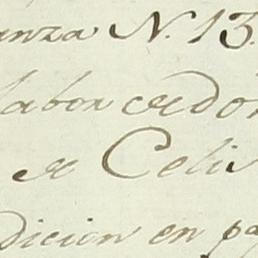 anza N. 13.
labor de do
de Celi
dicion en pa